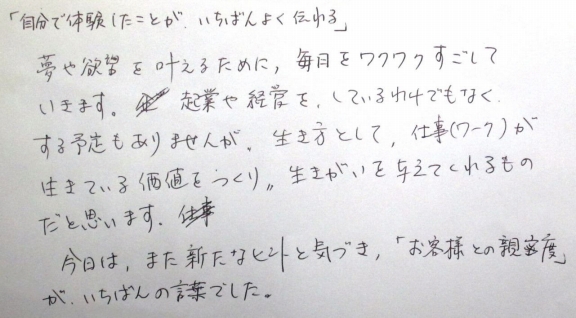 「自分で体験したことが、いちばんよく伝わる」
夢や欲望を叶えるために、毎日をワクワクすごして
いきます。起業や経営を、しているわけでもなく
する予定もありませんが、生き方として、仕事(ワーク)が
生きている価値をつくり〃生きがいを与えてくれるもの
だと思います。仕事
今日は、また新たなヒントと気づき、「お客様との親密度」
が、いちばんの言葉でした。